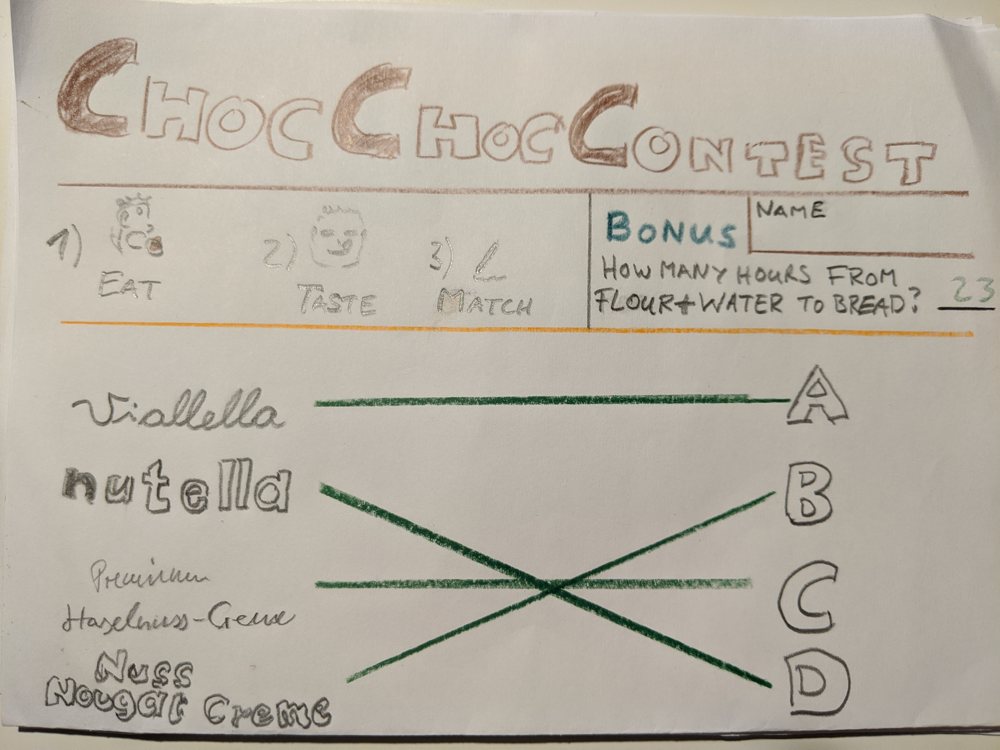 CHOC CHOC CONTEST
1) EAT
2) TASTE
3) MATCH
BONUS
NAME
HOW MANY HOURS FROM
FLOUR+WATER TO BREAD? 23
Viallella
A
nutella
B
Premium
Haselnuss-Creme
C
Nuss
Nougat Creme
D